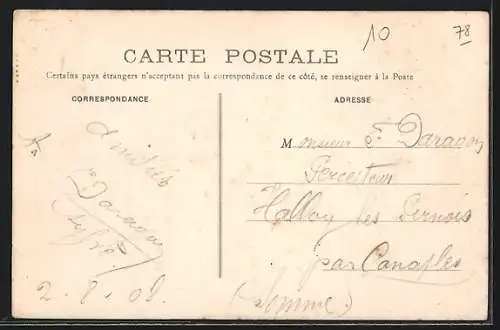 10
78
CARTE POSTALE
Certains pays étrangers n'acceptant pas la correspondance de ce côté, se renseigner à la Poste
CORRESPONDANCE
ADRESSE
Amitiés
Daragon
2.8.08.
Monsieur E. Daragon
Percepteur
Halloy les Pernois
par Canaples
(Somme)